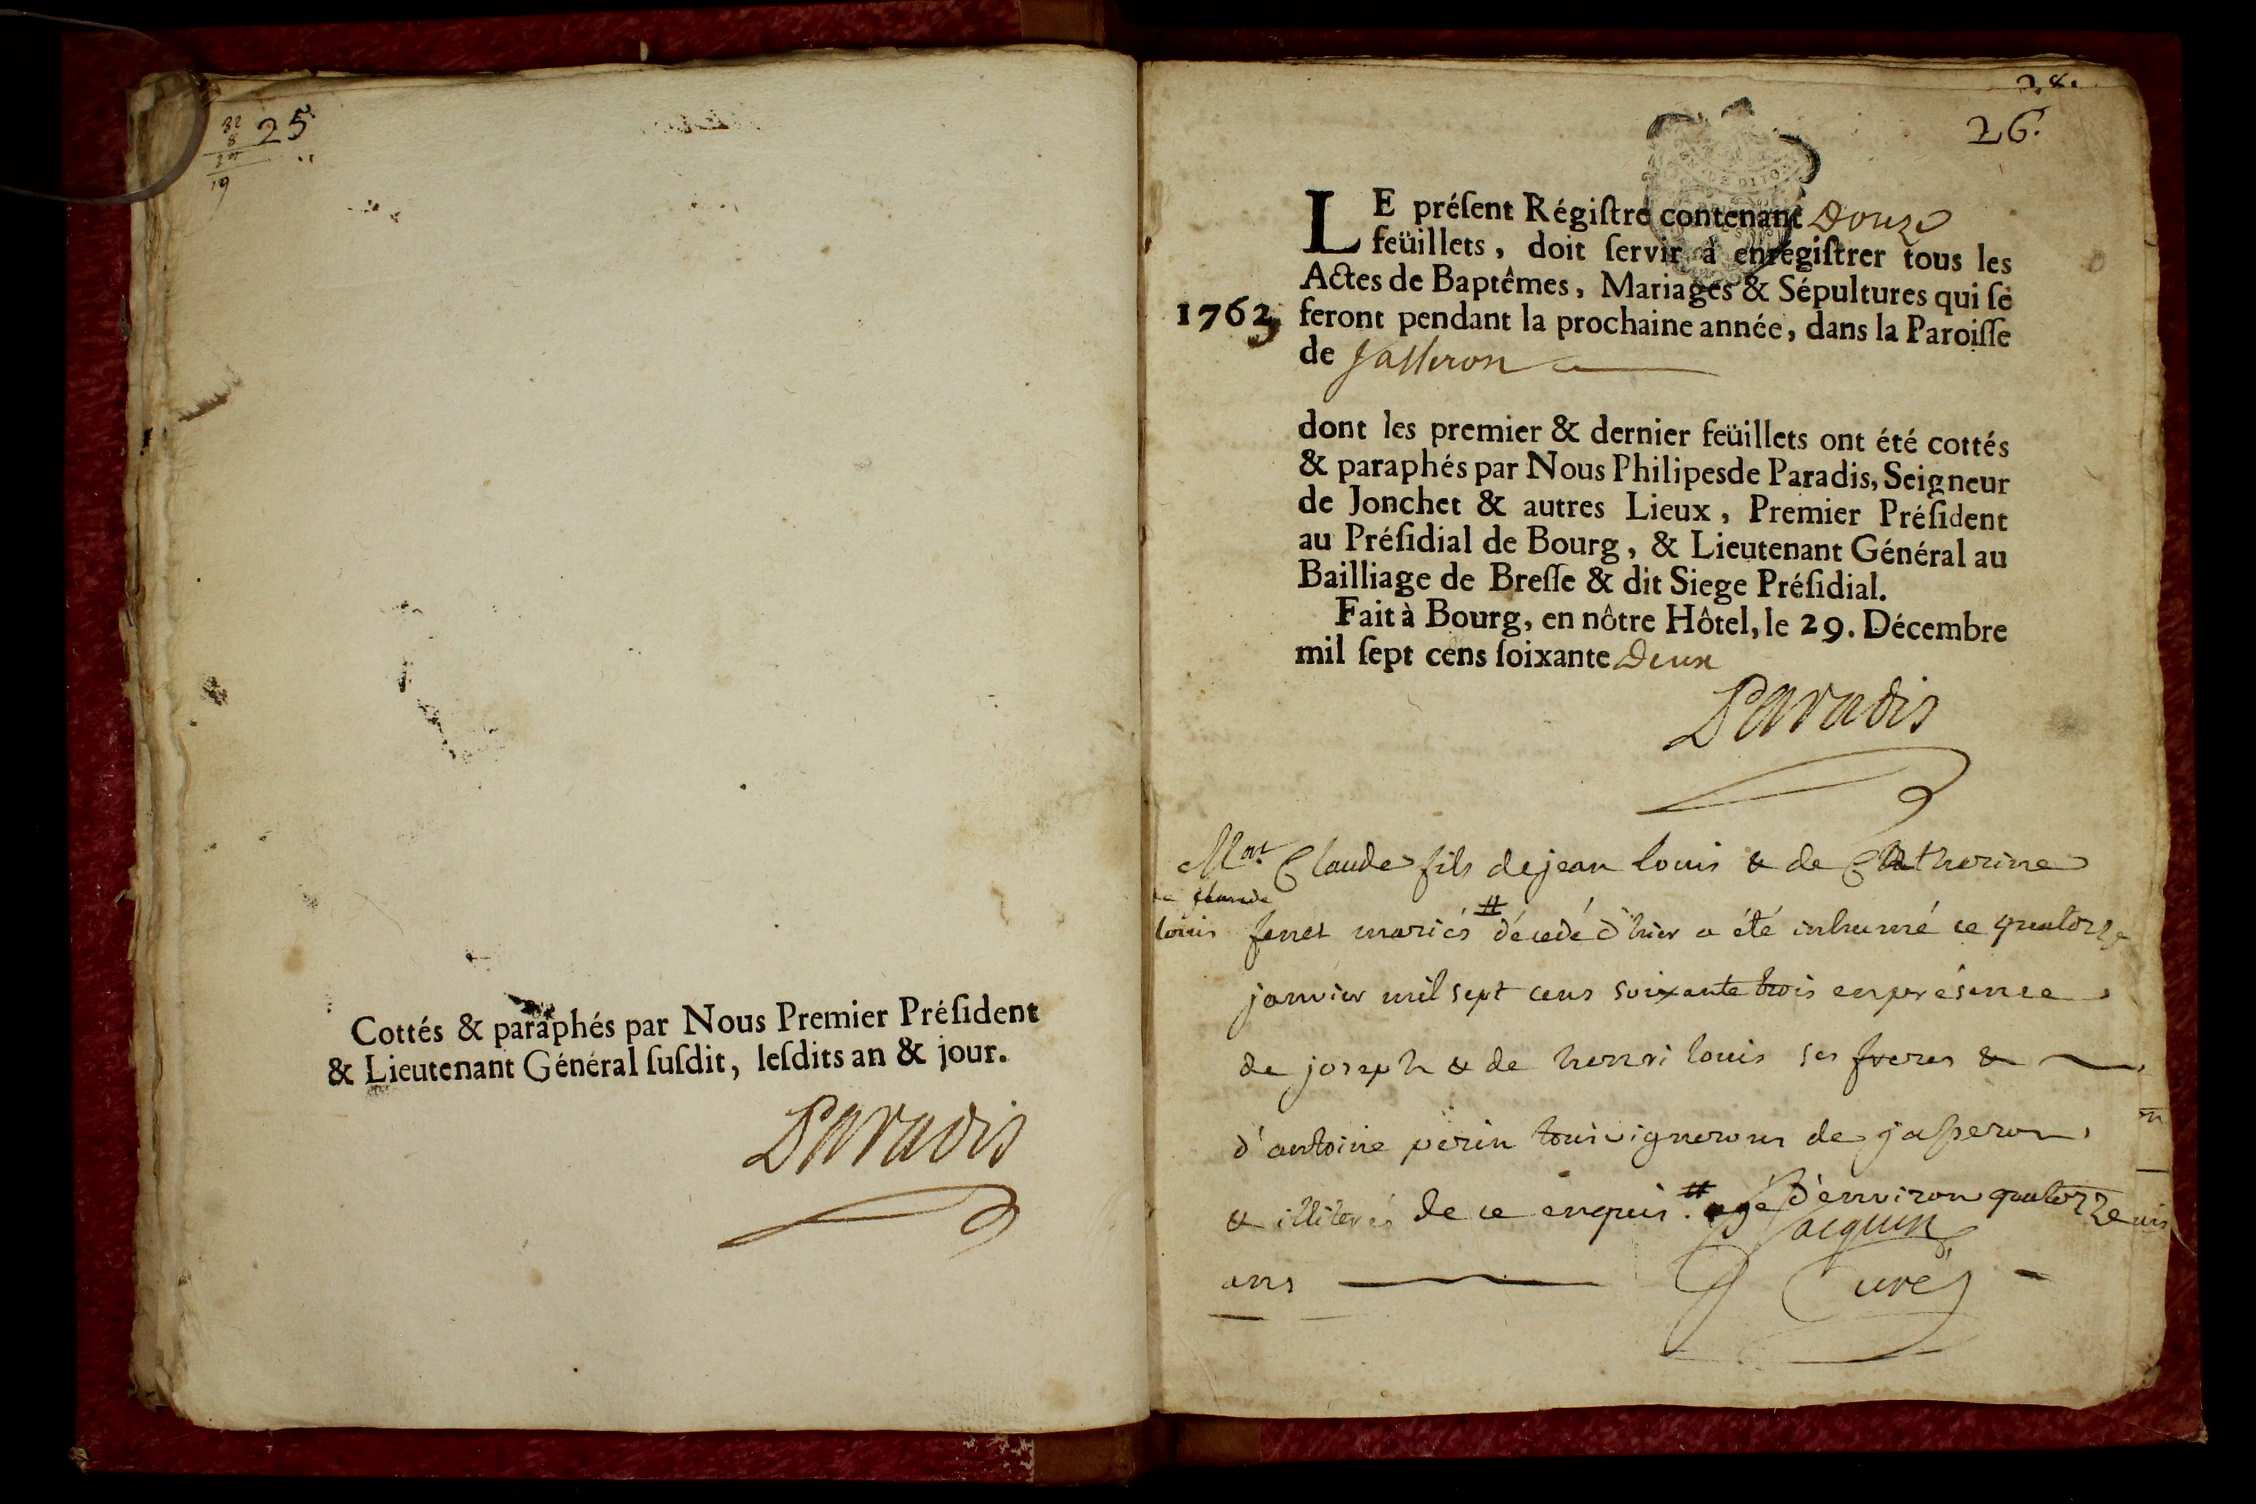 25
32
8
19
Cottés & paraphés par Nous Premier Préſident
& Lieutenant Général ſuſdit, leſdits an & jour.
Paradis
28.
26.
LE préſent Régiſtre contenant Douze
feüillets, doit ſervir à enrégiſtrer tous les
Actes de Baptêmes, Mariages & Sépultures qui ſe
1763 feront pendant la prochaine année, dans la Paroiſſe
de Jasseron
dont les premier & dernier feüillets ont été cottés
& paraphés par Nous Philipes de Paradis, Seigneur
de Jonchet & autres Lieux, Premier Préſident
au Préſidial de Bourg, & Lieutenant Général au
Bailliage de Breſſe & dit Siege Préſidial.
Fait à Bourg, en nôtre Hôtel, le 29. Décembre
mil ſept cens ſoixante Deux
Paradis
Mort
de Claude
louis
Claude fils de jean louis & de Catherine
fenet mariés # décedé d'hier a été inhumé ce quatorze
janvier mil sept cens soixante trois en présence
de joseph & de henri louis ses freres &
d'antoine perin tous vignerons de jasseron
& illiterés de ce enquis. # agé d'environ quatorze
ans
Jacquin
Curé